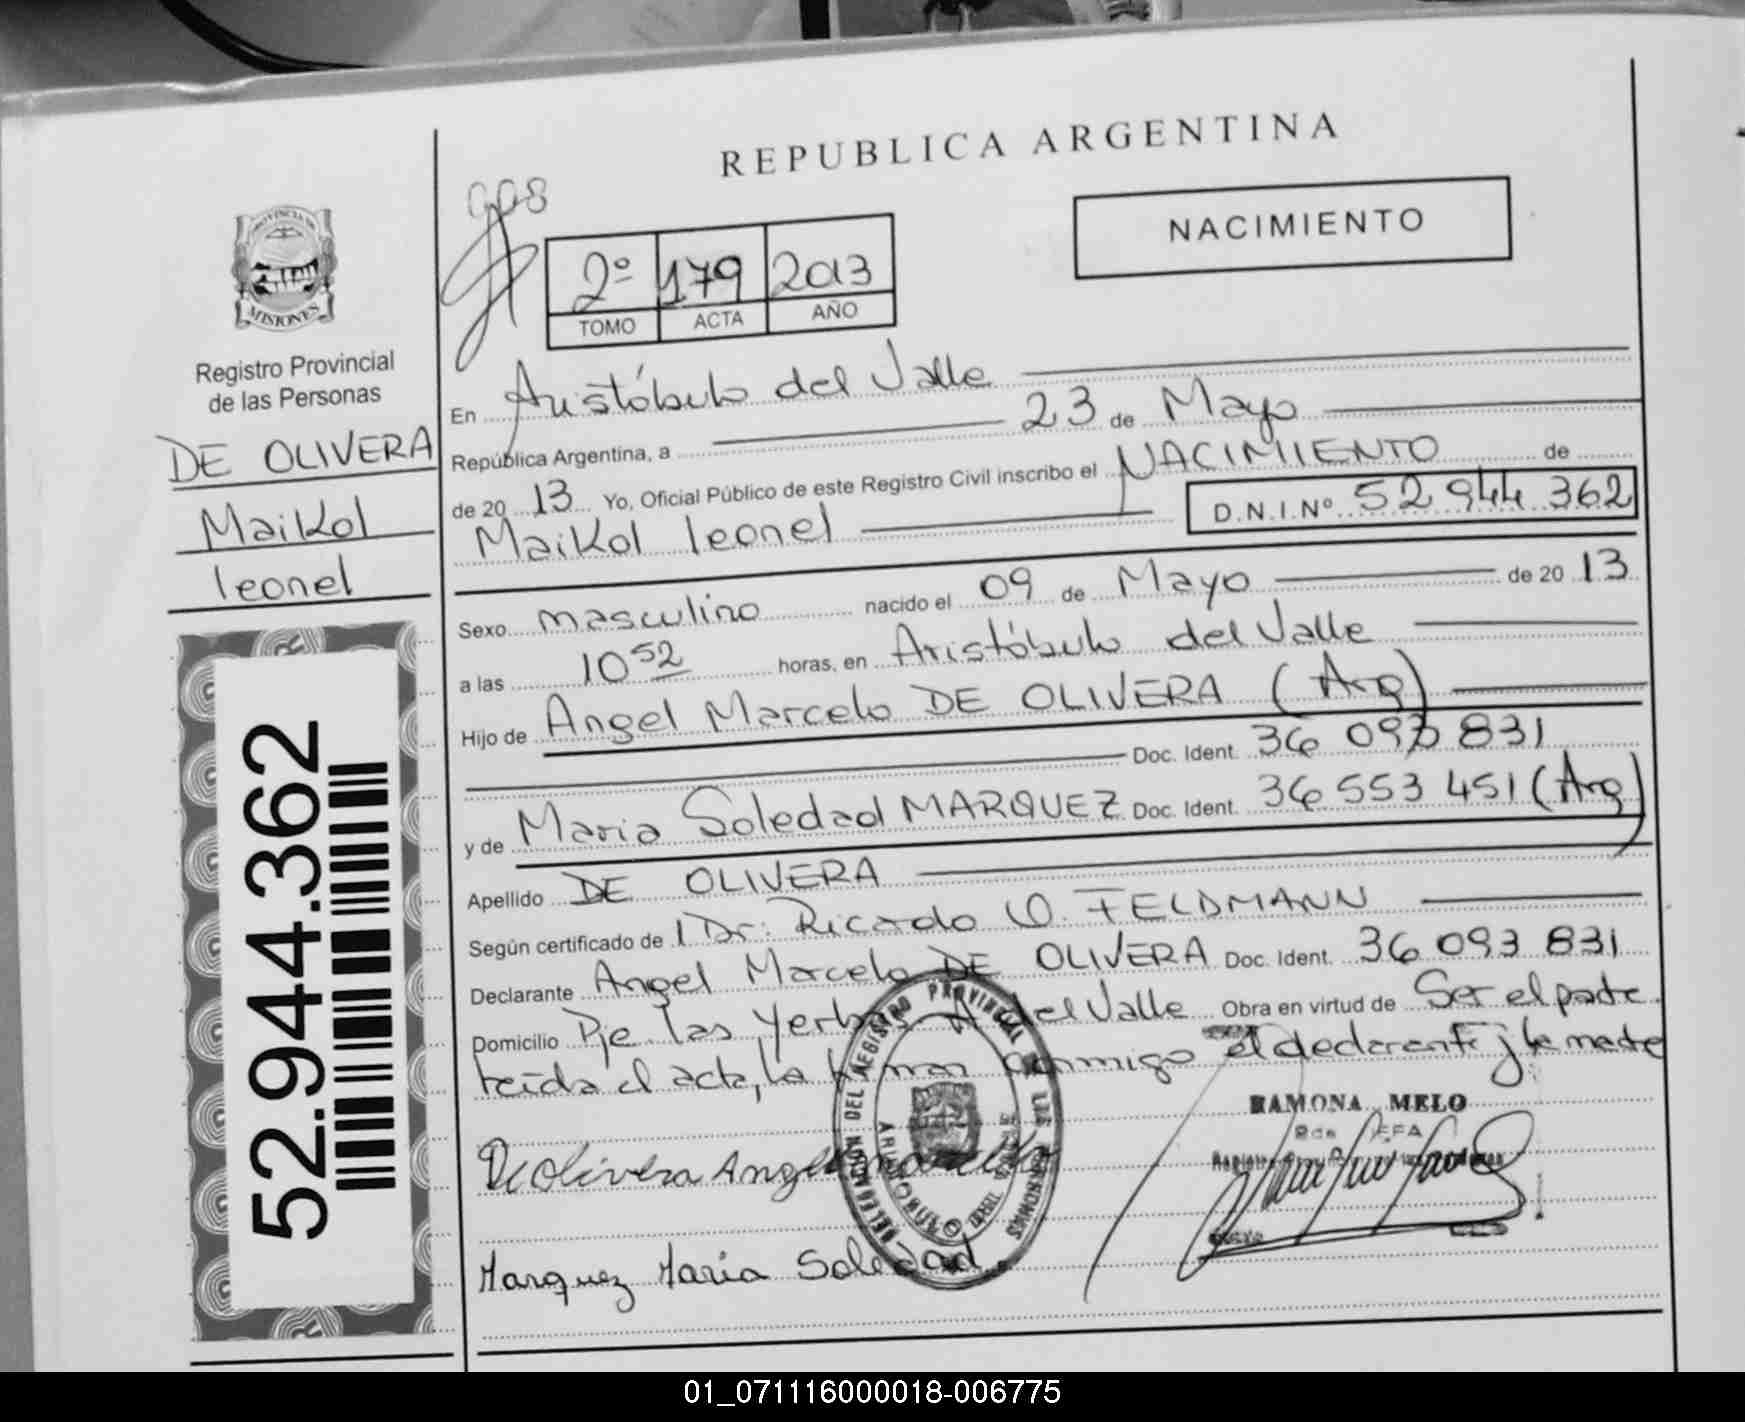 REPUBLICA ARGENTINA
NACIMIENTO
008
2º 179 2013
TOMO ACTA AÑO
PROVINCIA DE
MISIONES
Registro Provincial
de las Personas
DE OLIVERA
Maikol
leonel
52.944.362
En Aristóbulo del Valle
República Argentina, a 23 de Mayo
de 20 13 Yo, Oficial Público de este Registro Civil inscribo el NACIMIENTO de
Maikol leonel D.N.I.Nº 52 944 362
Sexo masculino nacido el 09 de Mayo de 20 13
a las 10 52 horas, en Aristóbulo del Valle
Hijo de Angel Marcelo DE OLIVERA (Arg)
Doc. Ident. 36 093 831
y de Maria Soledad MARQUEZ Doc. Ident. 36 553 451 (Arg)
Apellido DE OLIVERA
Según certificado de Dr. Ricardo O. FELDMANN
Declarante Angel Marcelo DE OLIVERA Doc. Ident. 36 093 831
Domicilio De las Yerbas A del Valle Obra en virtud de Ser el padre
leída el acta, la firman conmigo el declarante y la madre
DELEGACION DEL REGISTRO PROVINCIAL DE LAS PERSONAS
RAMONA MELO
De Olivera Angel marcelo
Marquez Maria Soledad
01_071116000018-006775